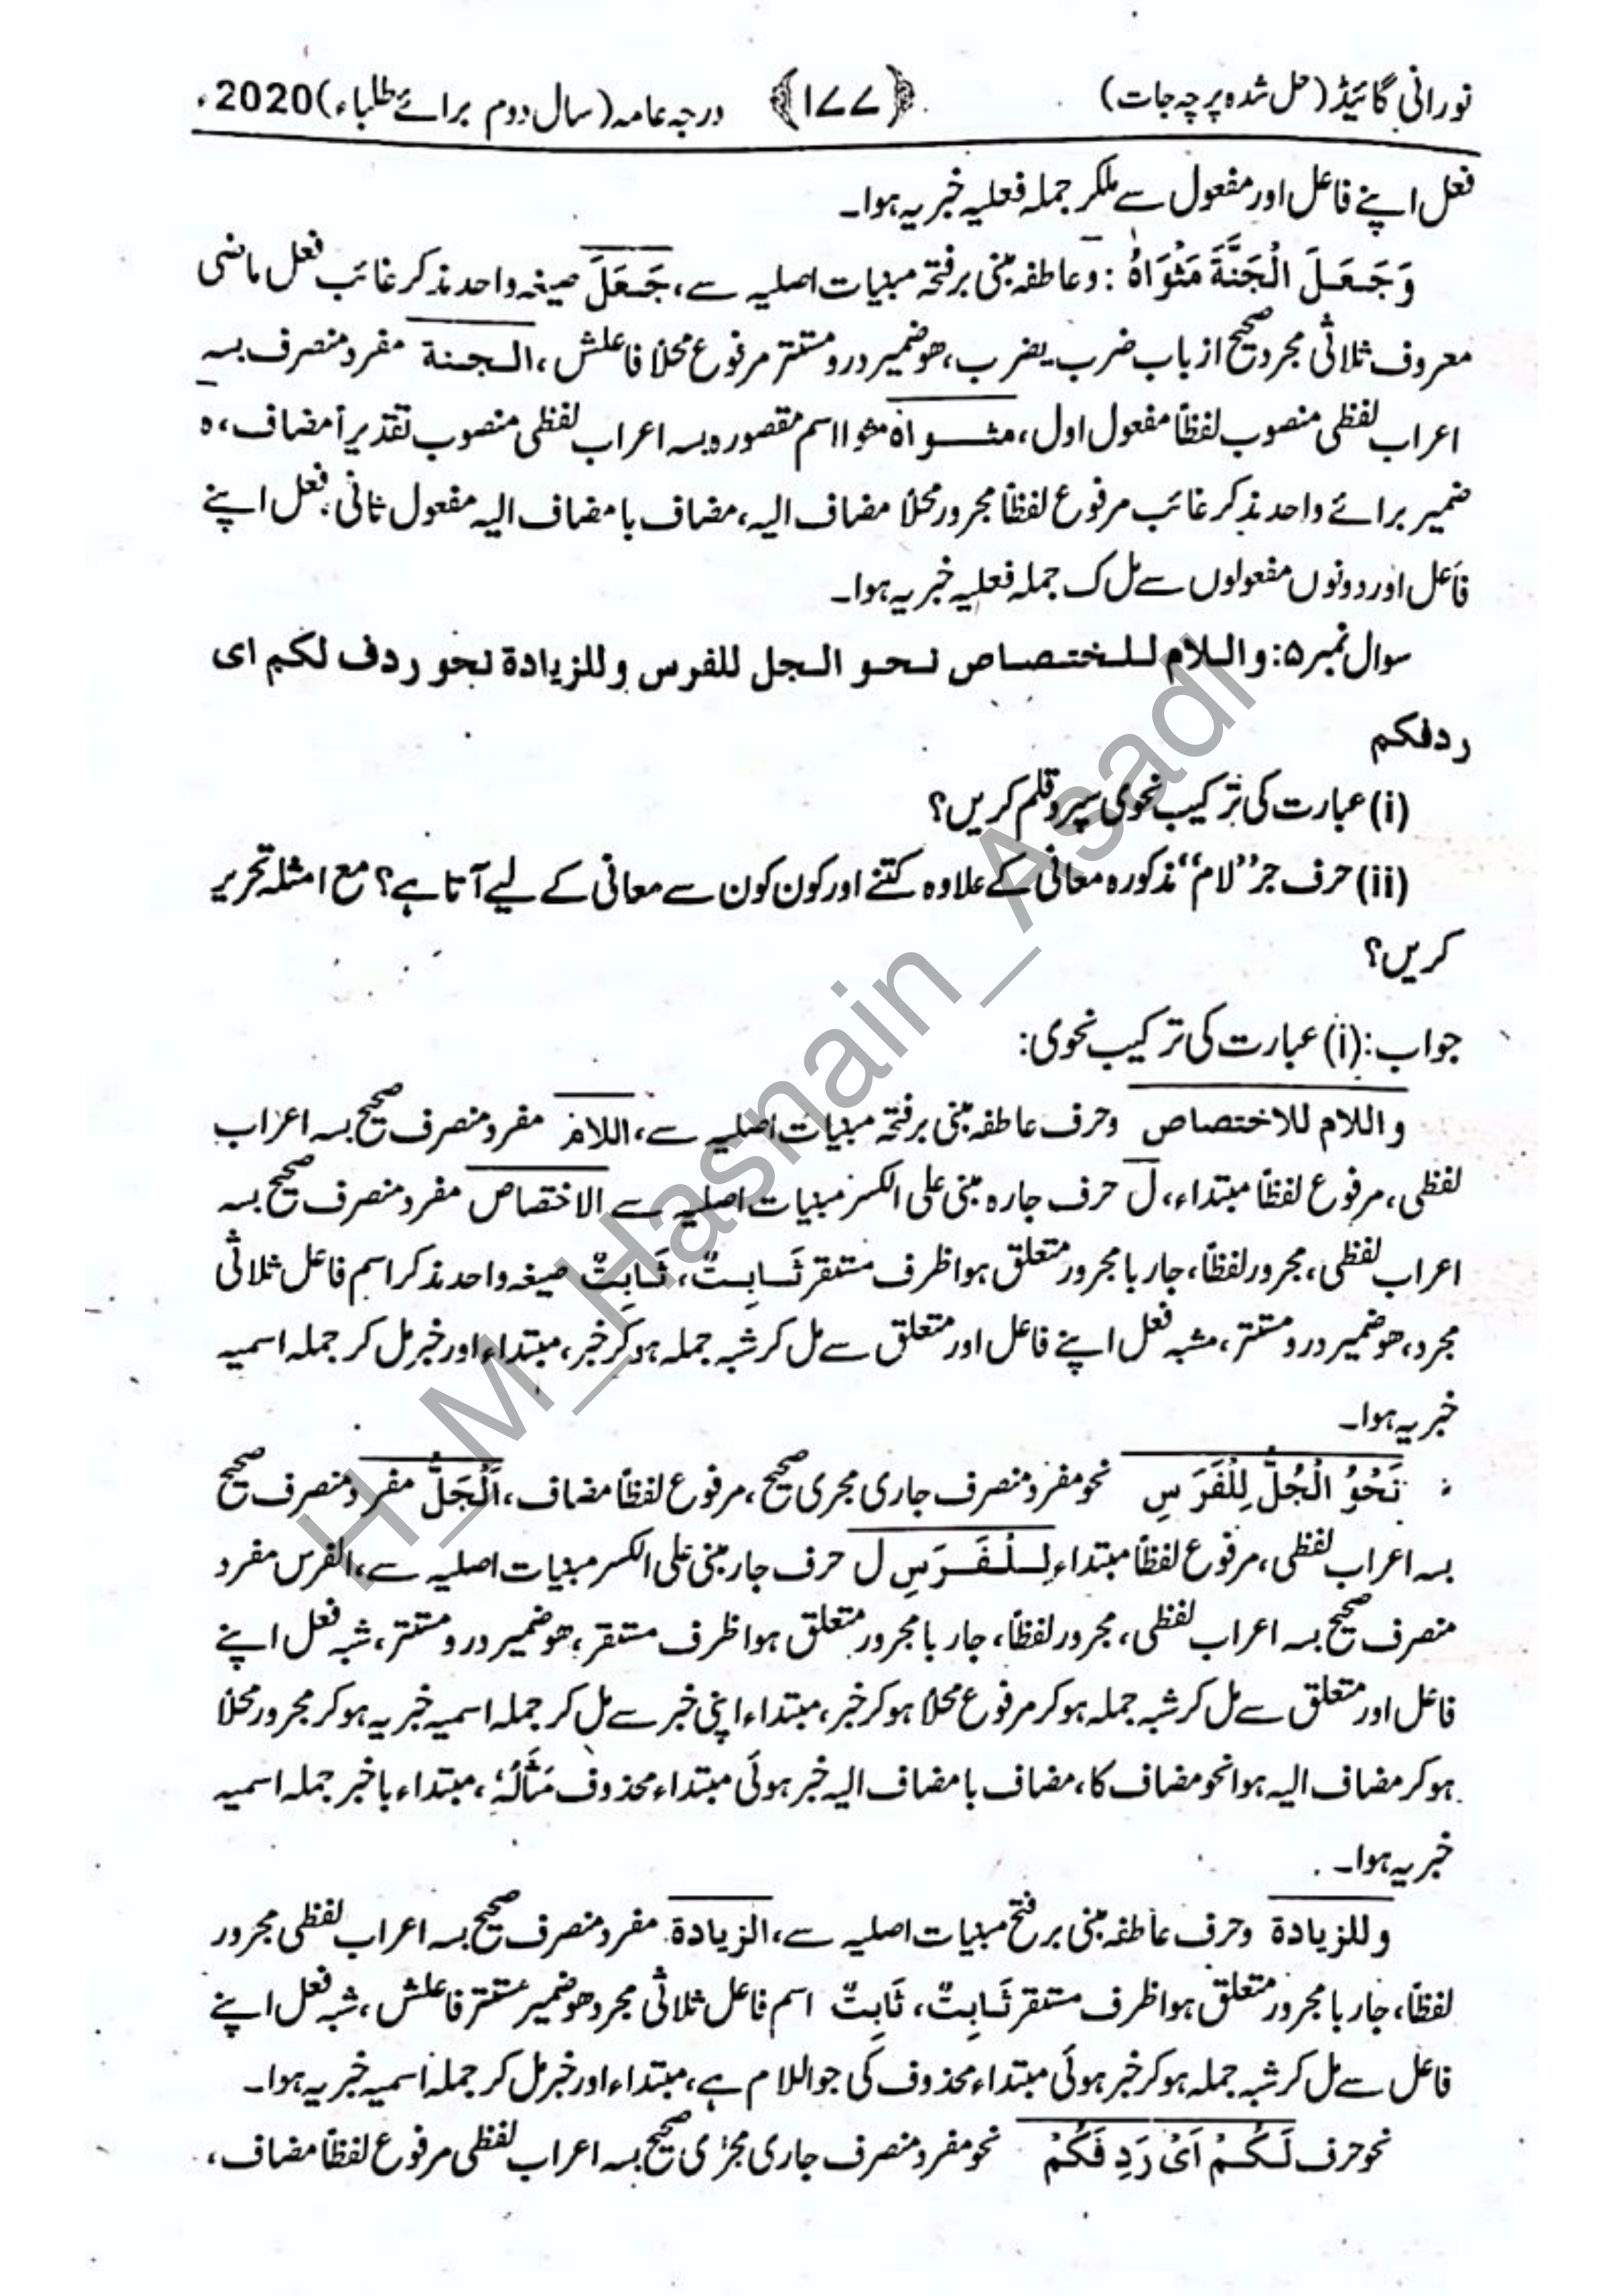 نورانی گائیڈ (حل شدہ پرچہ جات) ﴿۱۷۷﴾ درجہ عامہ (سال دوم برائے طلباء) 2020ء
فعل اپنے فاعل اور مفعول سے ملکر جملہ فعلیہ خبریہ ہوا۔
وَجَعَلَ الْجَنَّةَ مَثْوَاهُ : و عاطفہ مبنی برفتحہ مبنیات اصلیہ سے، جَعَلَ صیغہ واحد مذکر غائب فعل ماضی
معروف ثلاثی مجرد صحیح از باب ضرب یضرب، ھو ضمیر درو مستتر مرفوع محلاً فاعلش، الجنة مفرد منصرف بسہ
اعراب لفظی منصوب لفظاً مفعول اول، مثواہ مثوا اسم مقصورہ بسہ اعراب لفظی منصوب تقدیراً مضاف، ہ
ضمیر برائے واحد مذکر غائب مرفوع لفظاً مجرور محلاً مضاف الیہ، مضاف با مضاف الیہ مفعول ثانی، فعل اپنے
فاعل اور دونوں مفعولوں سے مل ک جملہ فعلیہ خبریہ ہوا۔
سوال نمبر ۵: واللام للختصاص نحو الجل للفرس وللزیادة نحو ردف لکم ای
ردفکم
(i) عبارت کی ترکیب نحوی سپرد قلم کریں؟
(ii) حرف جر ”لام“ مذکورہ معانی کے علاوہ کتنے اور کون کون سے معانی کے لیے آتا ہے؟ مع امثلہ تحریر
کریں؟
جواب: (i) عبارت کی ترکیب نحوی:
واللام للاختصاص و حرف عاطفہ مبنی برفتحہ مبنیات اصلیہ سے، اللام مفرد منصرف صحیح بسہ اعراب
لفظی، مرفوع لفظاً مبتداء، ل حرف جارہ مبنی علی الکسر مبنیات اصلیہ سے الاختصاص مفرد منصرف صحیح بسہ
اعراب لفظی، مجرور لفظاً، جار با مجرور متعلق ہوا ظرف مستقر ثَابِتٌ، ثَابِتٌ صیغہ واحد مذکر اسم فاعل ثلاثی
مجرد، ھو ضمیر درو مستتر، مشبہ فعل اپنے فاعل اور متعلق سے مل کر شبہ جملہ ہو کر خبر، مبتداء اور خبر مل کر جملہ اسمیہ
خبریہ ہوا۔
نَحْوُ الْجُلُّ لِلْفَرَسِ نحو مفرد منصرف جاری مجری صحیح، مرفوع لفظاً مضاف، اَلْجَلُّ مفرد منصرف صحیح
بسہ اعراب لفظی، مرفوع لفظاً مبتداء لِلْفَرَسِ ل حرف جار مبنی علی الکسر مبنیات اصلیہ سے، الفرس مفرد
منصرف صحیح بسہ اعراب لفظی، مجرور لفظاً، جار با مجرور متعلق ہوا ظرف مستقر، ھو ضمیر درو مستتر، شبہ فعل اپنے
فاعل اور متعلق سے مل کر شبہ جملہ ہو کر مرفوع محلاً ہو کر خبر، مبتداء اپنی خبر سے مل کر جملہ اسمیہ خبریہ ہو کر مجرور محلاً
ہو کر مضاف الیہ ہوا نحو مضاف کا، مضاف با مضاف الیہ خبر ہوئی مبتداء محذوف مَثَالُہٗ، مبتداء با خبر جملہ اسمیہ
خبریہ ہوا۔
وللزیادة و حرف عاطفہ مبنی بر فتح مبنیات اصلیہ سے، الزیادة مفرد منصرف صحیح بسہ اعراب لفظی مجرور
لفظاً، جار با مجرور متعلق ہوا ظرف مستقر ثَابِتٌ، ثَابِتٌ اسم فاعل ثلاثی مجرد ھو ضمیر مستتر فاعلش، شبہ فعل اپنے
فاعل سے مل کر شبہ جملہ ہو کر خبر ہوئی مبتداء محذوف کی جو اللام ہے، مبتداء اور خبر مل کر جملہ اسمیہ خبریہ ہوا۔
نحو حرف لَکُمْ اَیْ رَدِفَکُمْ نحو مفرد منصرف جاری مجرٰی صحیح بسہ اعراب لفظی مرفوع لفظاً مضاف،
H_M_Hasnain_Asadi